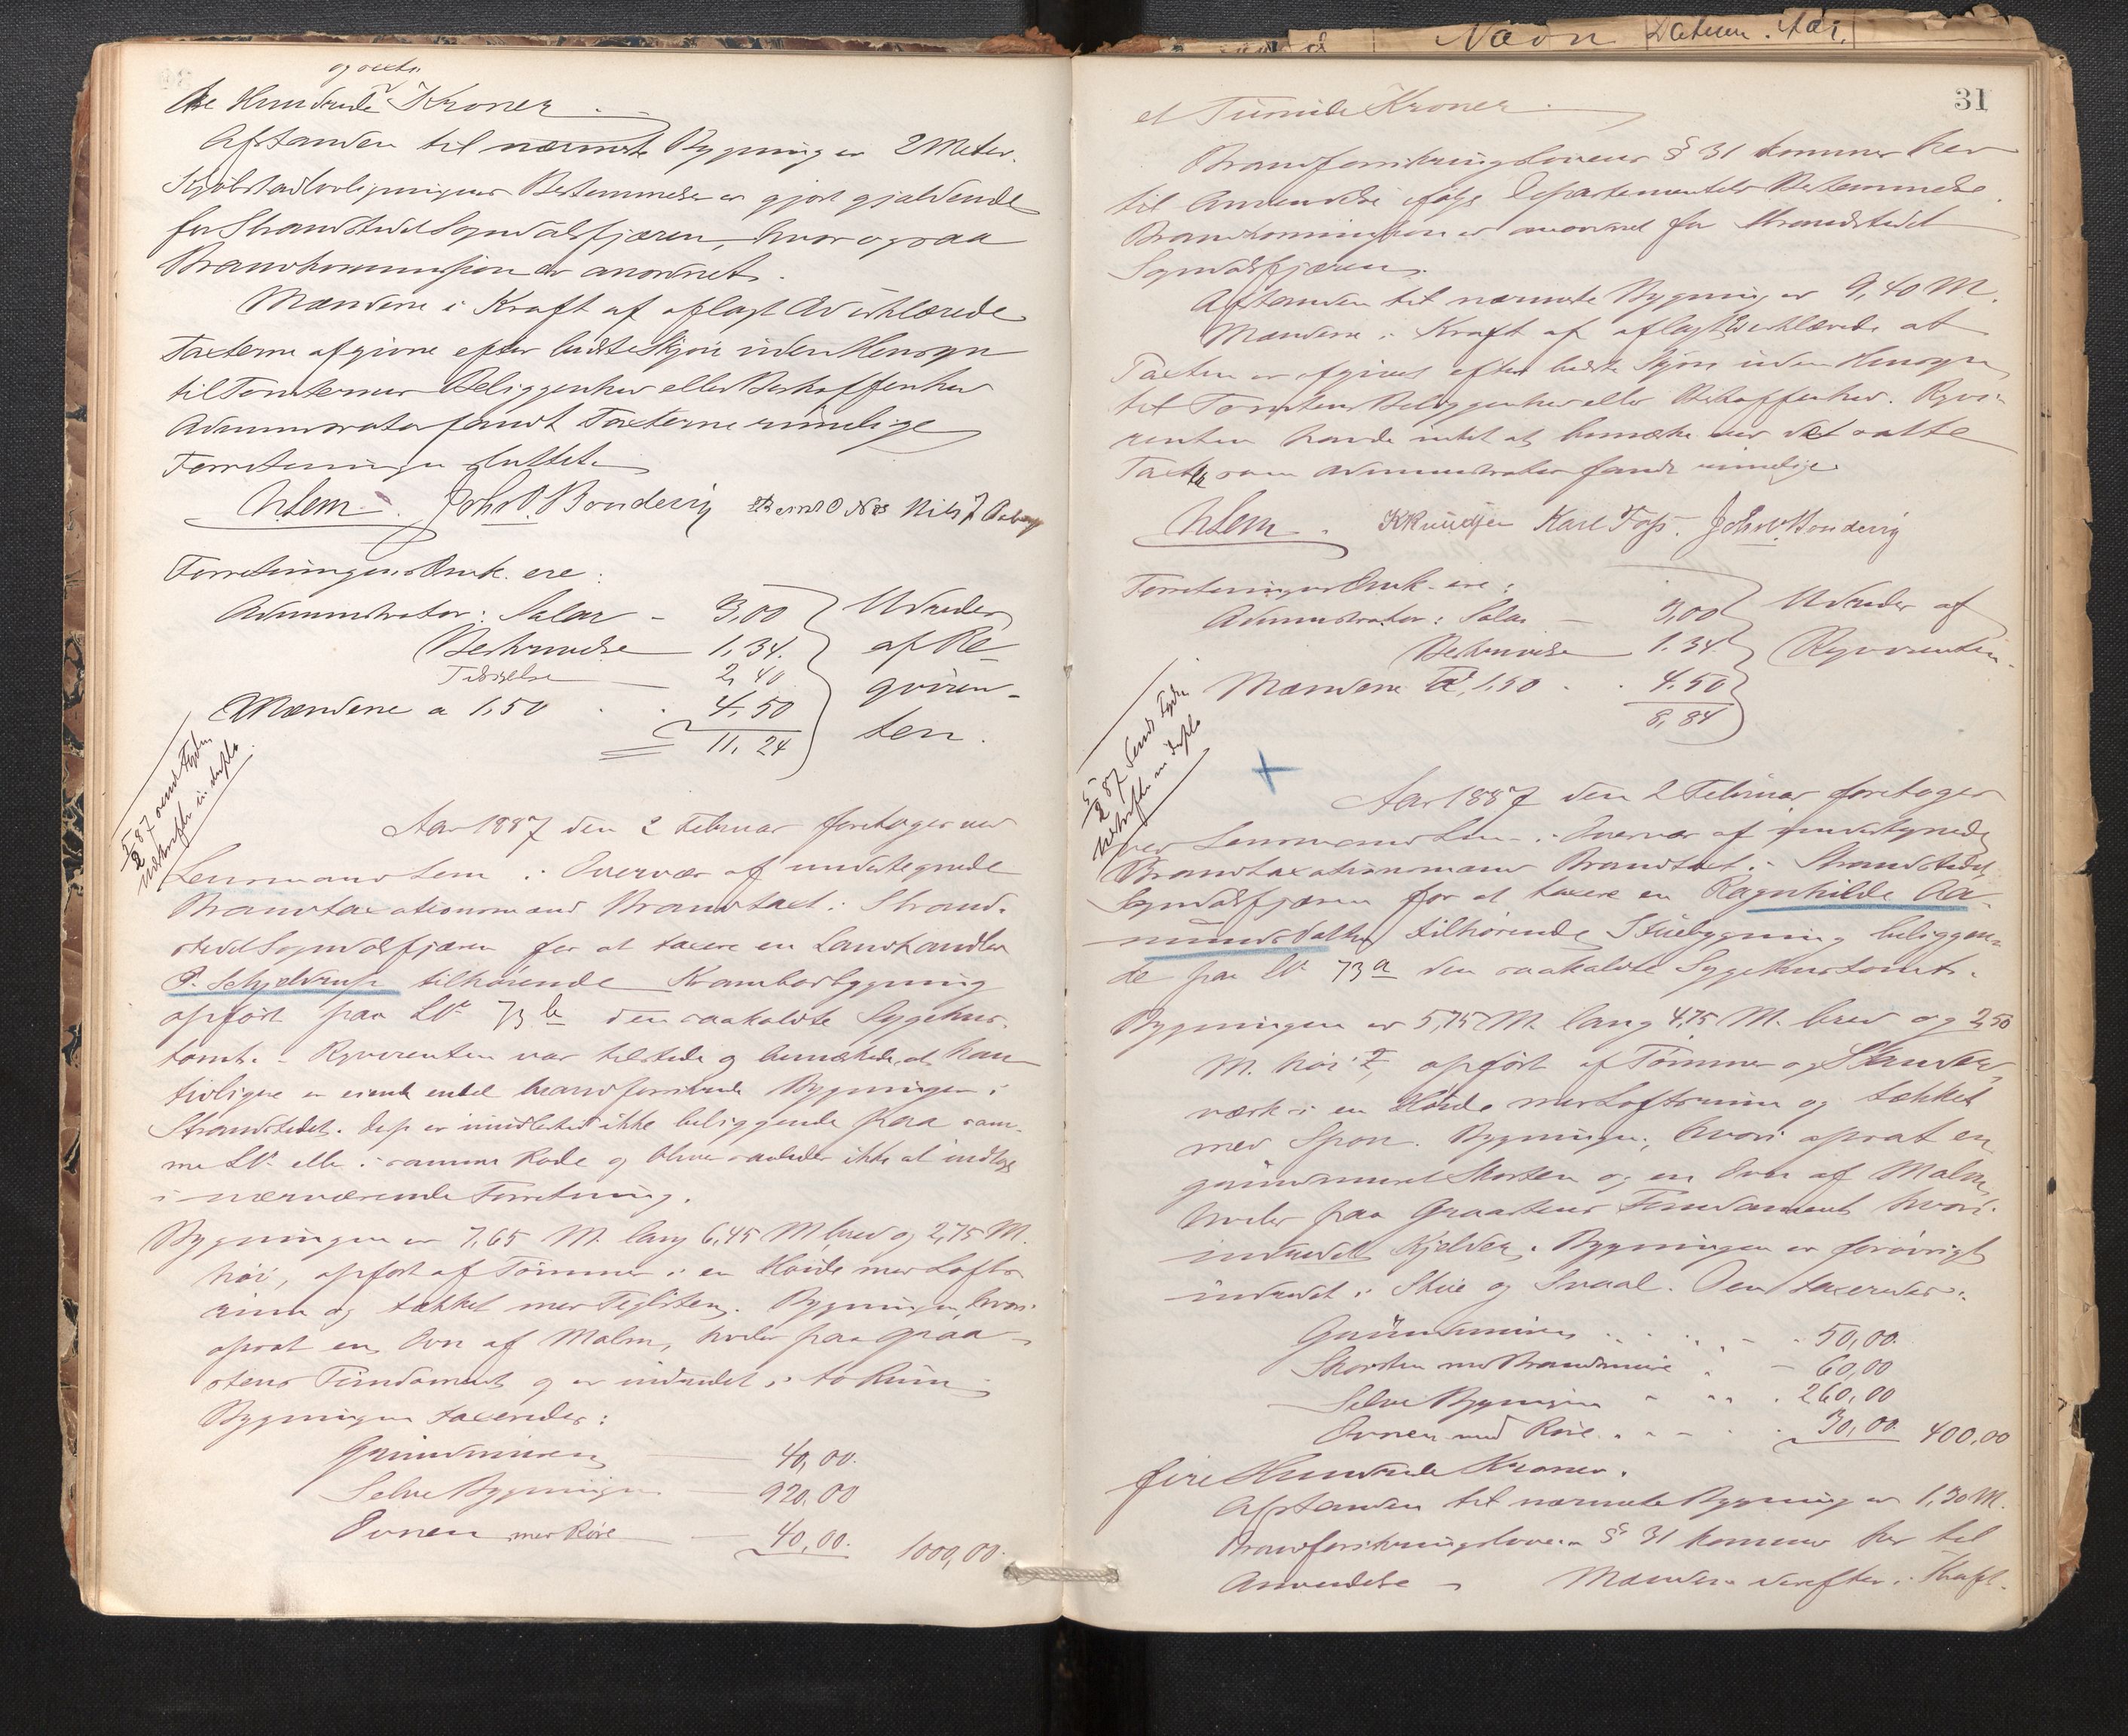 og
Hundrede Kroner
Afstanden til nærmeste Bygning er 2 Meter.
Kjøbstadlovgivningens Bestemmelser er gjort gjældende
for Strandstedet Sogndalsfjæren, hvor ogsaa
Brandkommission er anordnet.
Mændene i Kraft af aflagt Ed erklærede
Taxterne afgivne efter bedste Skjøn uden Hensyn
til Tomternes Beliggenhed eller Beskaffenhed
Administrator fandt Taxterne rimelige
Forretningen sluttet.
NLem. Joh. O. Bondevig Bernt O Næs Nils J Aaberg
Forretningens Omk. ere:
Administrator: Salar - 3,00 Udredes
Beskrivelse 1,34. af Re-
Tilsigelse 2,40 qviren-
Mændene a 1,50 4,50 ten.
11,24
5/2 87 sendt Fogden
Udskrift in duplo
Aar 1887 den 2 Februar foretoges ved
Lensmand Lem i Overvær af undertegnede
Brandtaxationsmænd Brandtaxt i Strand-
stedet Sogndalsfjæren for at taxere en Landhandler
O. Schjelderup tilhørende Krambodbygning
opført paa LN 73 b den saakaldte Sygehus-
tomt. - Rqvirenten var tilstede og bemærkede at han
tidligere er eiende endel brandforsikrede Bygninger i
Strandstedet. Disse er imidlertid ikke beliggende paa sam-
me LN eller i samme Rode og bliver saaledes ikke at indtage
i nærværende Forretning.
Bygningen er 7,65 M. lang 6,45 M. bred og 2,75 M.
høi, opført af Tømmer i en Høide med Lofts-
rum og tækket med Teglsten. Bygningen, hvori
opsat en Ovn af Malm, hviler paa Graa-
stens Fundament og er indredet i to Rum
Bygningen taxeredes:
Grundmuren 40,00.
Selve Bygningen 920,00
Ovnen med Röre 40,00. 1000,00.
Navn Datum. Aar.
31
et Tusinde Kroner.
Brandforsikringslovens § 31 kommer her
til Anvendelse ifølge Departementets Bestemmelse.
Brandkommission er anordnet for Strandstedet
Sogndalsfjæren.
Afstanden til nærmeste Bygning er 9,40 M.
Mændene i Kraft af aflagt Ed erklærede at
Taxten er afgivet efter bedste Skjøn uden Hensyn
til Tomtens Beliggenhed eller Beskaffenhed. Rqvi-
renten havde intet at bemærke ved det satte
Taxt, som Administrator fandt rimelige.
NLem. KKnudsen Karl Foss. Joh. O. Bondevig
Forretningens Omk. ere:
Administrator: Salar - 3,00 Udredes af
Beskrivelse 1.34. Rqvirenten.
Mændene a 1,50 4.50
8,84
5/2 87 Sendt Fogden
Udskrift in duplo
Aar 1887 den 2 Februar foretoges
ved Lensmand Lem i Overvær af undertegnede
Brandtaxationsmænd Brandtaxt i Strandstedet
Sogndalsfjæren for at taxere en Ragnhilde Aa-
mundsdatter tilhørende Stuebygning beliggen-
de paa LN 73 a den saakaldte Sygehustomt.
Bygningen er 5,75 M. lang 4,75 M. bred og 2,50
M. høi, opført af Tømmer og Stænder-
værk i en Høide med Loftsrum og tækket
med Spon. Bygningen, hvori opsat en
grundmuret Skorsten og en Ovn af Malm,
hviler paa Graastens Fundament hvori
indredet Kjelder. Bygningen er forøvrigt
indredet i Stue og Svaal. Den taxeredes:
Grundmuren 50,00.
Skorsten med Brandmure 60,00
Selve Bygningen 260,00
Ovnen med Röre 30,00. 400,00
fire Hundrede Kroner.
Afstanden til nærmeste Bygning er 1,30 M.
Brandforsikringslovens § 31 kommer her til
Anvendelse Mændene derefter i Kraft